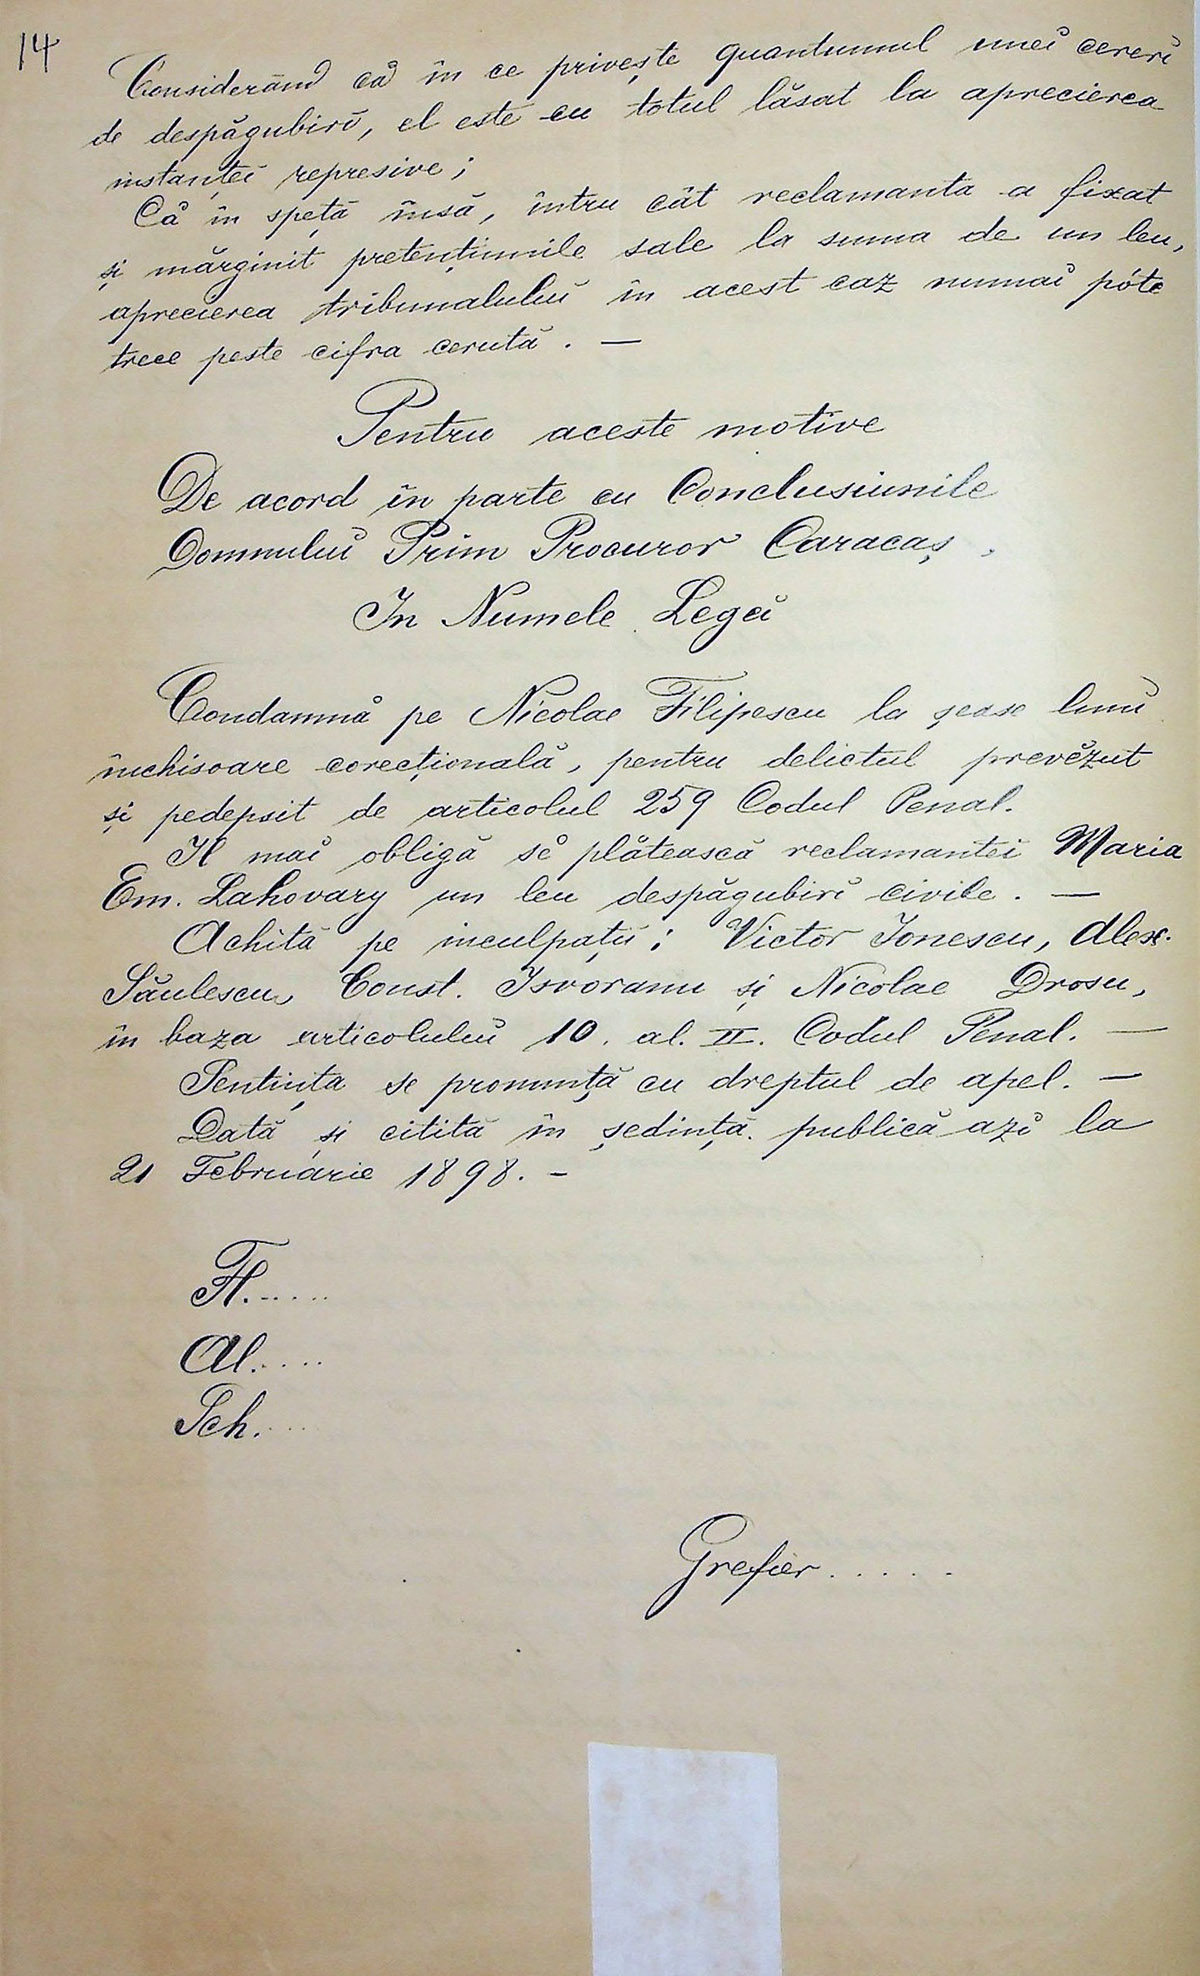 14
Considerând că în ce privește quantumul unei cererĭ
de despăgubirĭ, el este cu totul lăsat la aprecierea
instanțeĭ represive;
Că în speță însă, întru cât reclamanta a fixat
și mărginit pretențiunile sale la suma de un leu,
aprecierea tribunaluluĭ în acest caz numaĭ póte
trece peste cifra cerută. —
Pentru aceste motive
De acord în parte cu Conclusiunile
Domnuluĭ Prim Procuror Caracaș,
In Numele Legeĭ
Condamnă pe Nicolae Filipescu la șease lunĭ
închisoare corecțională, pentru delictul prevĕzut
și pedepsit de articolul 259 Codul Penal.
Il maĭ obligă sĕ plătească reclamanteĭ Maria
Em. Lahovary un leu despăgubirĭ civile. —
Achită pe inculpațiĭ: Victor Ionescu, Alex.
Săulescu, Const. Isvoranu și Nicolae Drosu,
în baza articoluluĭ 10. al. II. Codul Penal. —
Sentința se pronunță cu dreptul de apel. —
Dată și citită în ședință publică azĭ la
21 Februarie 1898. —
Fl.....
Al.....
Sch....
Grefier.....